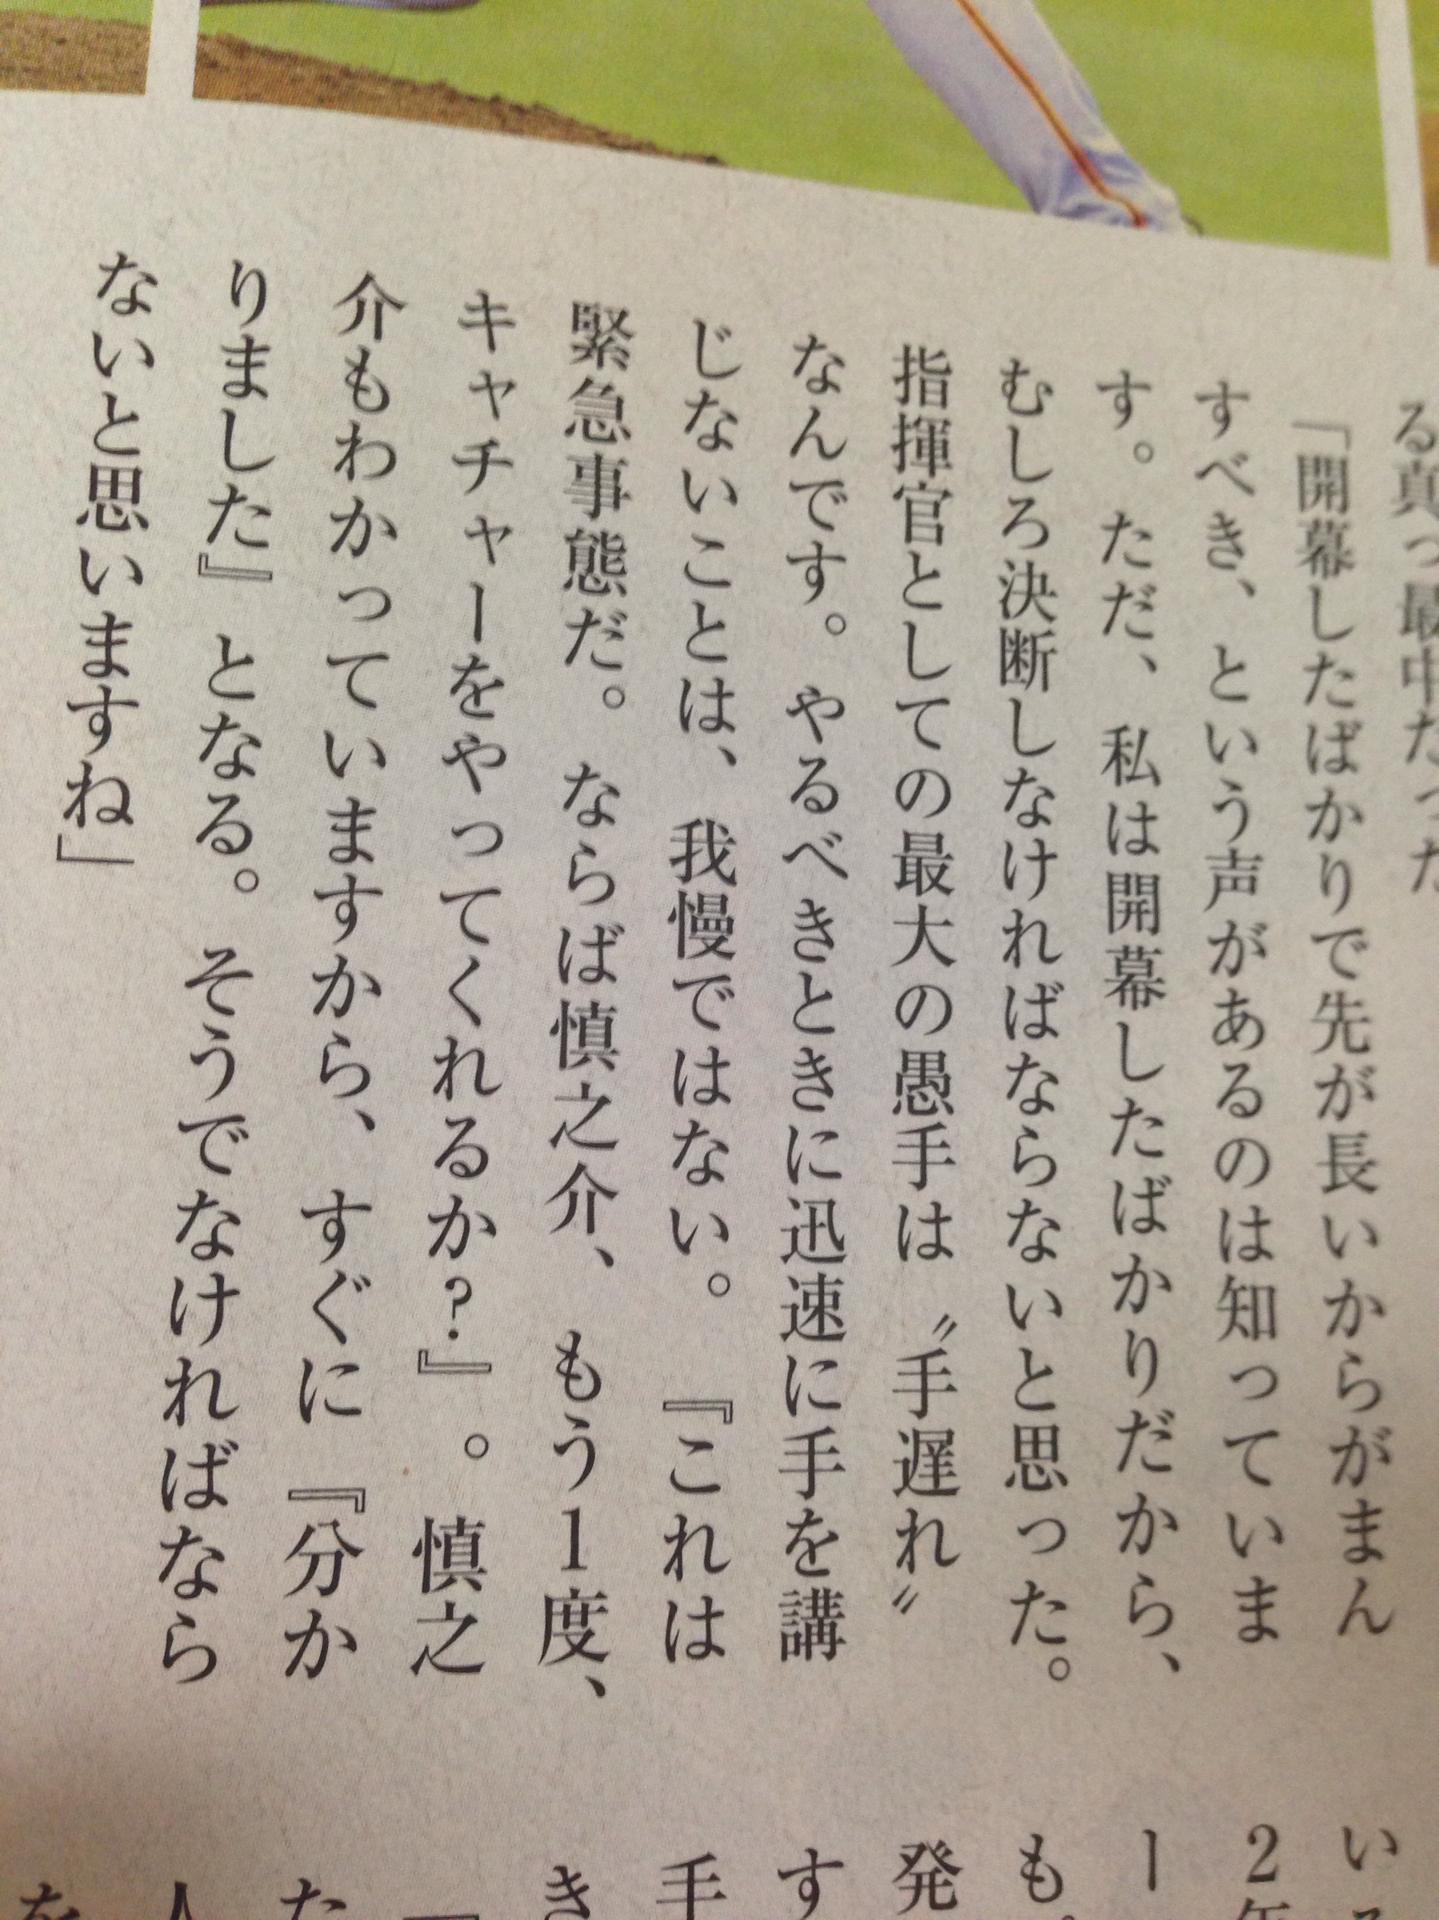 る真っ最中だった
「開幕したばかりで先が長いからがまん
すべき、という声があるのは知っていま
す。ただ、私は開幕したばかりだから、
むしろ決断しなければならないと思った。
指揮官としての最大の愚手は〝手遅れ〟
なんです。やるべきときに迅速に手を講
じないことは、我慢ではない。『これは
緊急事態だ。ならば慎之介、もう1度、
キャチャーをやってくれるか?』。慎之
介もわかっていますから、すぐに『分か
りました』となる。そうでなければなら
ないと思いますね」
い
2年
ー
も。
発
す
手
き
「
た
人
を